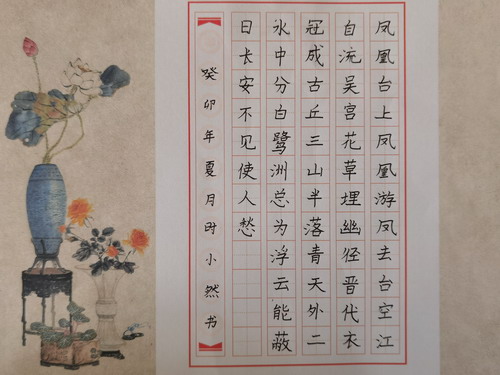 凤凰台上凤凰游凤去台空江
自流吴宫花草埋幽径晋代衣
冠成古丘三山半落青天外二
水中分白鹭洲总为浮云能蔽
日长安不见使人愁
癸卯年夏月时小然书